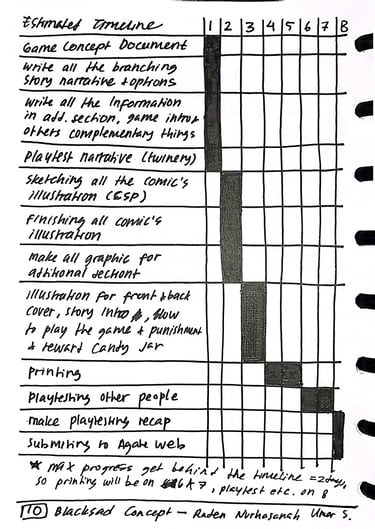 Estimated Timeline 1 2 3 4 5 6 7 8
Game Concept Document
Write all the branching
Story narrative & options
Write all the Information
in add. section, game intro &
others complementary things
Playtest narrative (twinery)
Sketching all the comic's
illustration (ESP)
Finishing all comic's
illustration
make all graphic for
additional section
illustration for front & back
cover, story intro, how
to play the game & punishment
& reward Candy Jar
Printing
Playtesting other people
make playtesting recap
Submiting to Agate Web
* max progress get behind the timeline = 2 days,
so printing will be on 6 & 7, playtest etc. on 8
10 Blacksad Concept — Raden Nurhasanah Umar S.